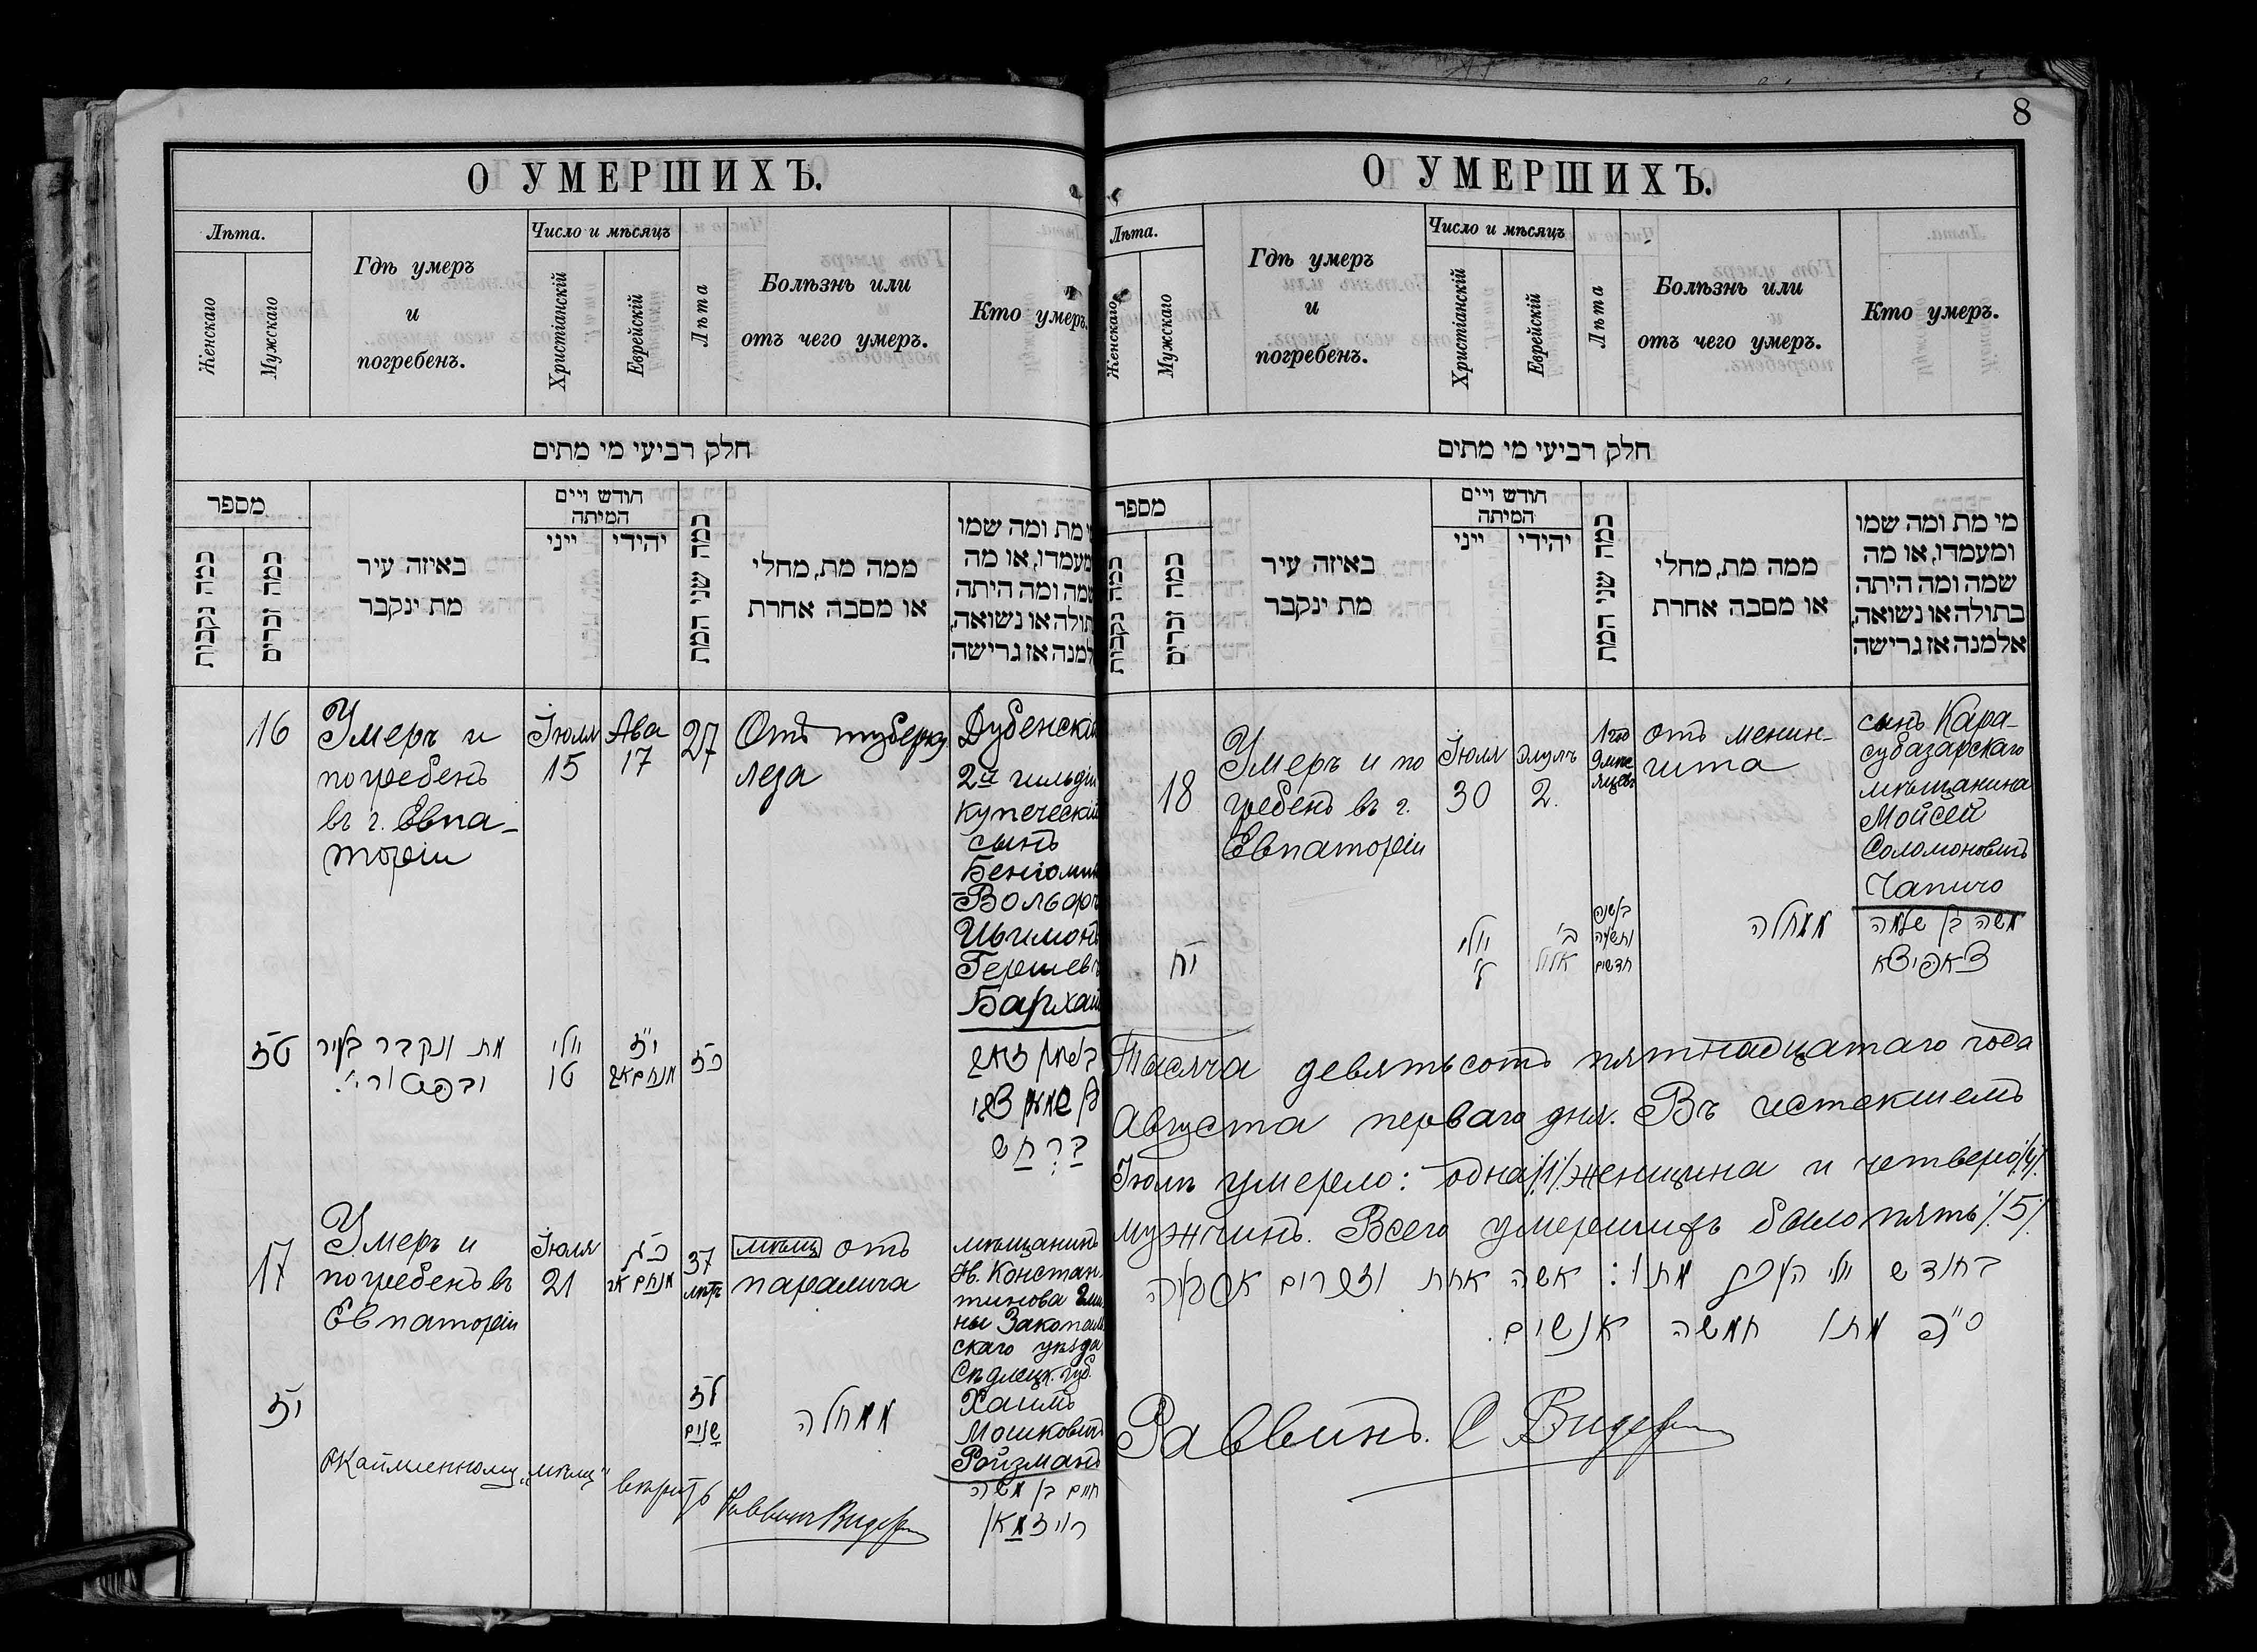 8
О УМЕРШИХЪ.
Лѣта.
Женскаго
Мужскаго
Гдѣ умеръ
и
погребенъ.
Число и мѣсяцъ
Христіанскій
Еврейскій
Лѣта
Болѣзнь или
отъ чего умеръ.
Кто умеръ.
חלק רביעי מי מתים
מספר
כמה נקבות
כמה זכרים
באיזה עיר
מת ינקבר
חודש ויים
המיתה
ייני
יהידי
כמה שני המת
ממה מת, מחלי
או מסבה אחרת
מי מת ומה שמו
ומעמדו, או מה
שמה ומה היתה
בתולה או נשואה,
אלמנה אז גרישה
16
Умеръ и
погребенъ
въ г. Евпа-
торіи
Іюля
15
Ава
17
27
Отъ туберку
леза
Дубенскій
2й гильдіи
купеческій
сынъ
Бенюмин
Вольфъ
Гершев
Бархаш
טז
מת ונקבר בעיר
יולי
טו
י"ז
מנחם אב
כז
ב ר ח ש
17
Умеръ и
погребенъ въ
Евпаторіи
Іюля
21
מנחם אב
37
лѣтъ
мѣщ отъ
паралича
мѣщанинъ
Н. Констан-
тинова
скаго уѣзда
Сѣдлецк. губ.
Хаимъ
Мошковичъ
Ройзманъ
יז
לז
שנים
ממחלה
חיים בן משה
רויזמאן
Окаймленному „мѣщ“ вѣрить
Раввинъ Видер
О УМЕРШИХЪ.
Лѣта.
Женскаго
Мужскаго
Гдѣ умеръ
и
погребенъ.
Число и мѣсяцъ
Христіанскій
Еврейскій
Лѣта
Болѣзнь или
отъ чего умеръ.
Кто умеръ.
חלק רביעי מי מתים
מספר
כמה נקבות
כמה זכרים
באיזה עיר
מת ינקבר
חודש ויים
המיתה
ייני
יהידי
כמה שני המת
ממה מת, מחלי
או מסבה אחרת
מי מת ומה שמו
ומעמדו, או מה
שמה ומה היתה
בתולה או נשואה,
אלמנה אז גרישה
18
Умеръ и по
гребенъ въ г.
Евпаторіи
Іюля
30
Элулъ
2.
1 год
9 мѣс
яцевъ
отъ менин-
гита
сынъ Кара-
субазарскаго
мѣщанина
Мойсей
Соломоновичъ
Чапичо
יח
יולי
ל'
ב'
אלול
ותשעה
חדשים
ממחלה
משה בן שלמה
Тысяча девятьсотъ пятнадцатаго года
Августа перваго дня. Въ истекшемъ
Іюлѣ умерло: одна /1/ женщина и четверо /4/
мужчинъ. Всего умершихъ было пять /5/
בחודש יולי העבר מתו: אשה אחת וזכרים ארבעה
ס"ה מתו חמשה אנשים.
Раввинъ. С Видер